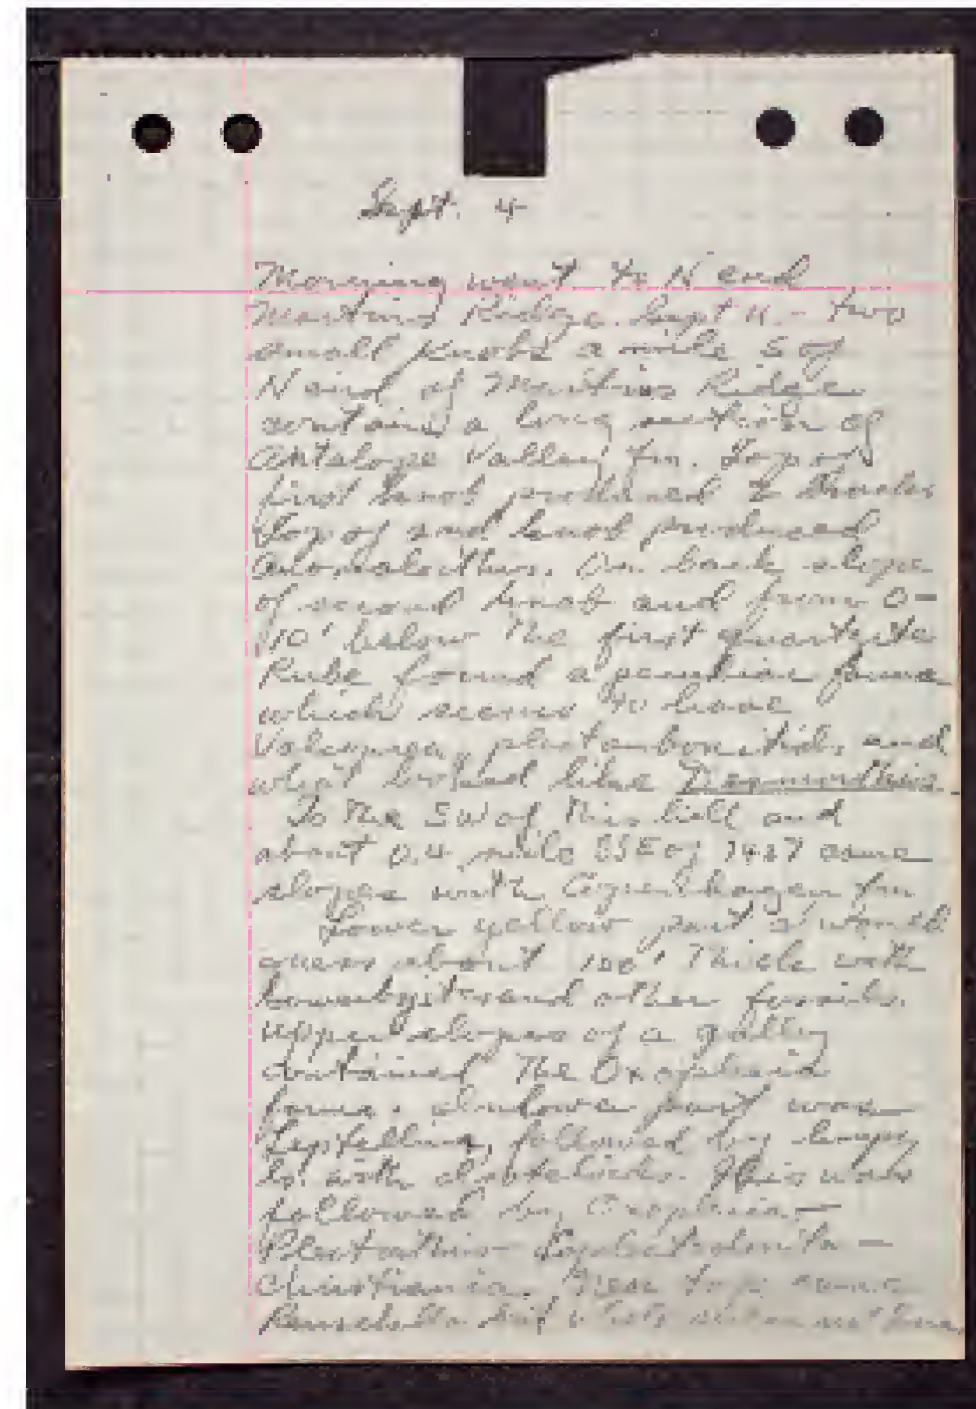 Sept. 4
Morning went to N end
Martins Ridge. Sept 4. - two
small knobs a mile S of
N end of Martins Ridge
contains a long section of
Antelope Valley fm. Top of
first knob produced
Top of 2nd knob produced
Anomalorthis. On back slope
of second knob and from 0-
10' below the first quartzite
Rube found a peculiar fauna
which seems to have
Valcourea, plectambonitids and
what looked like Desmorthis.
To the SW of this hill and
about 0.4 mile SSE of 7427 some
slopes with Copenhagen fm
Lower yellow part
about 100' thick with
and other fossils.
Upper slopes of a gully
contained the Oxoplecia
fauna. lower part was
followed by limey
ls. with This was
followed by Oxoplecia -
-
Christiania. Near top some